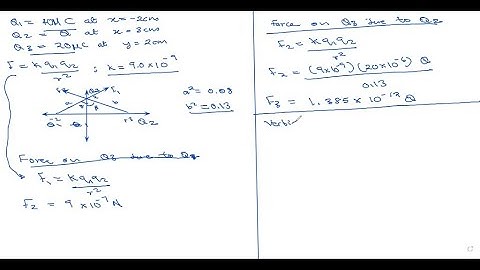 Q1 = 10μC at x=-2cm
Q2 = Q at x = 3cm
Q3 = 20μC at y = 2cm
F = k q1 q2 / r² ; k = 9.0×10⁻⁹
a² = 0.08
b² = 0.13
Q2
Force on Q3 due to
F1 = k q1 q2 / r²
F2 = 9 × 10⁻⁷ N
Force on Q3 due to Q2
F2 = k q1 q2 / r²
F2 = (9×10⁻⁹)(20×10⁻⁶) Q / 0.13
F3 = 1.385 × 10⁻¹² Q